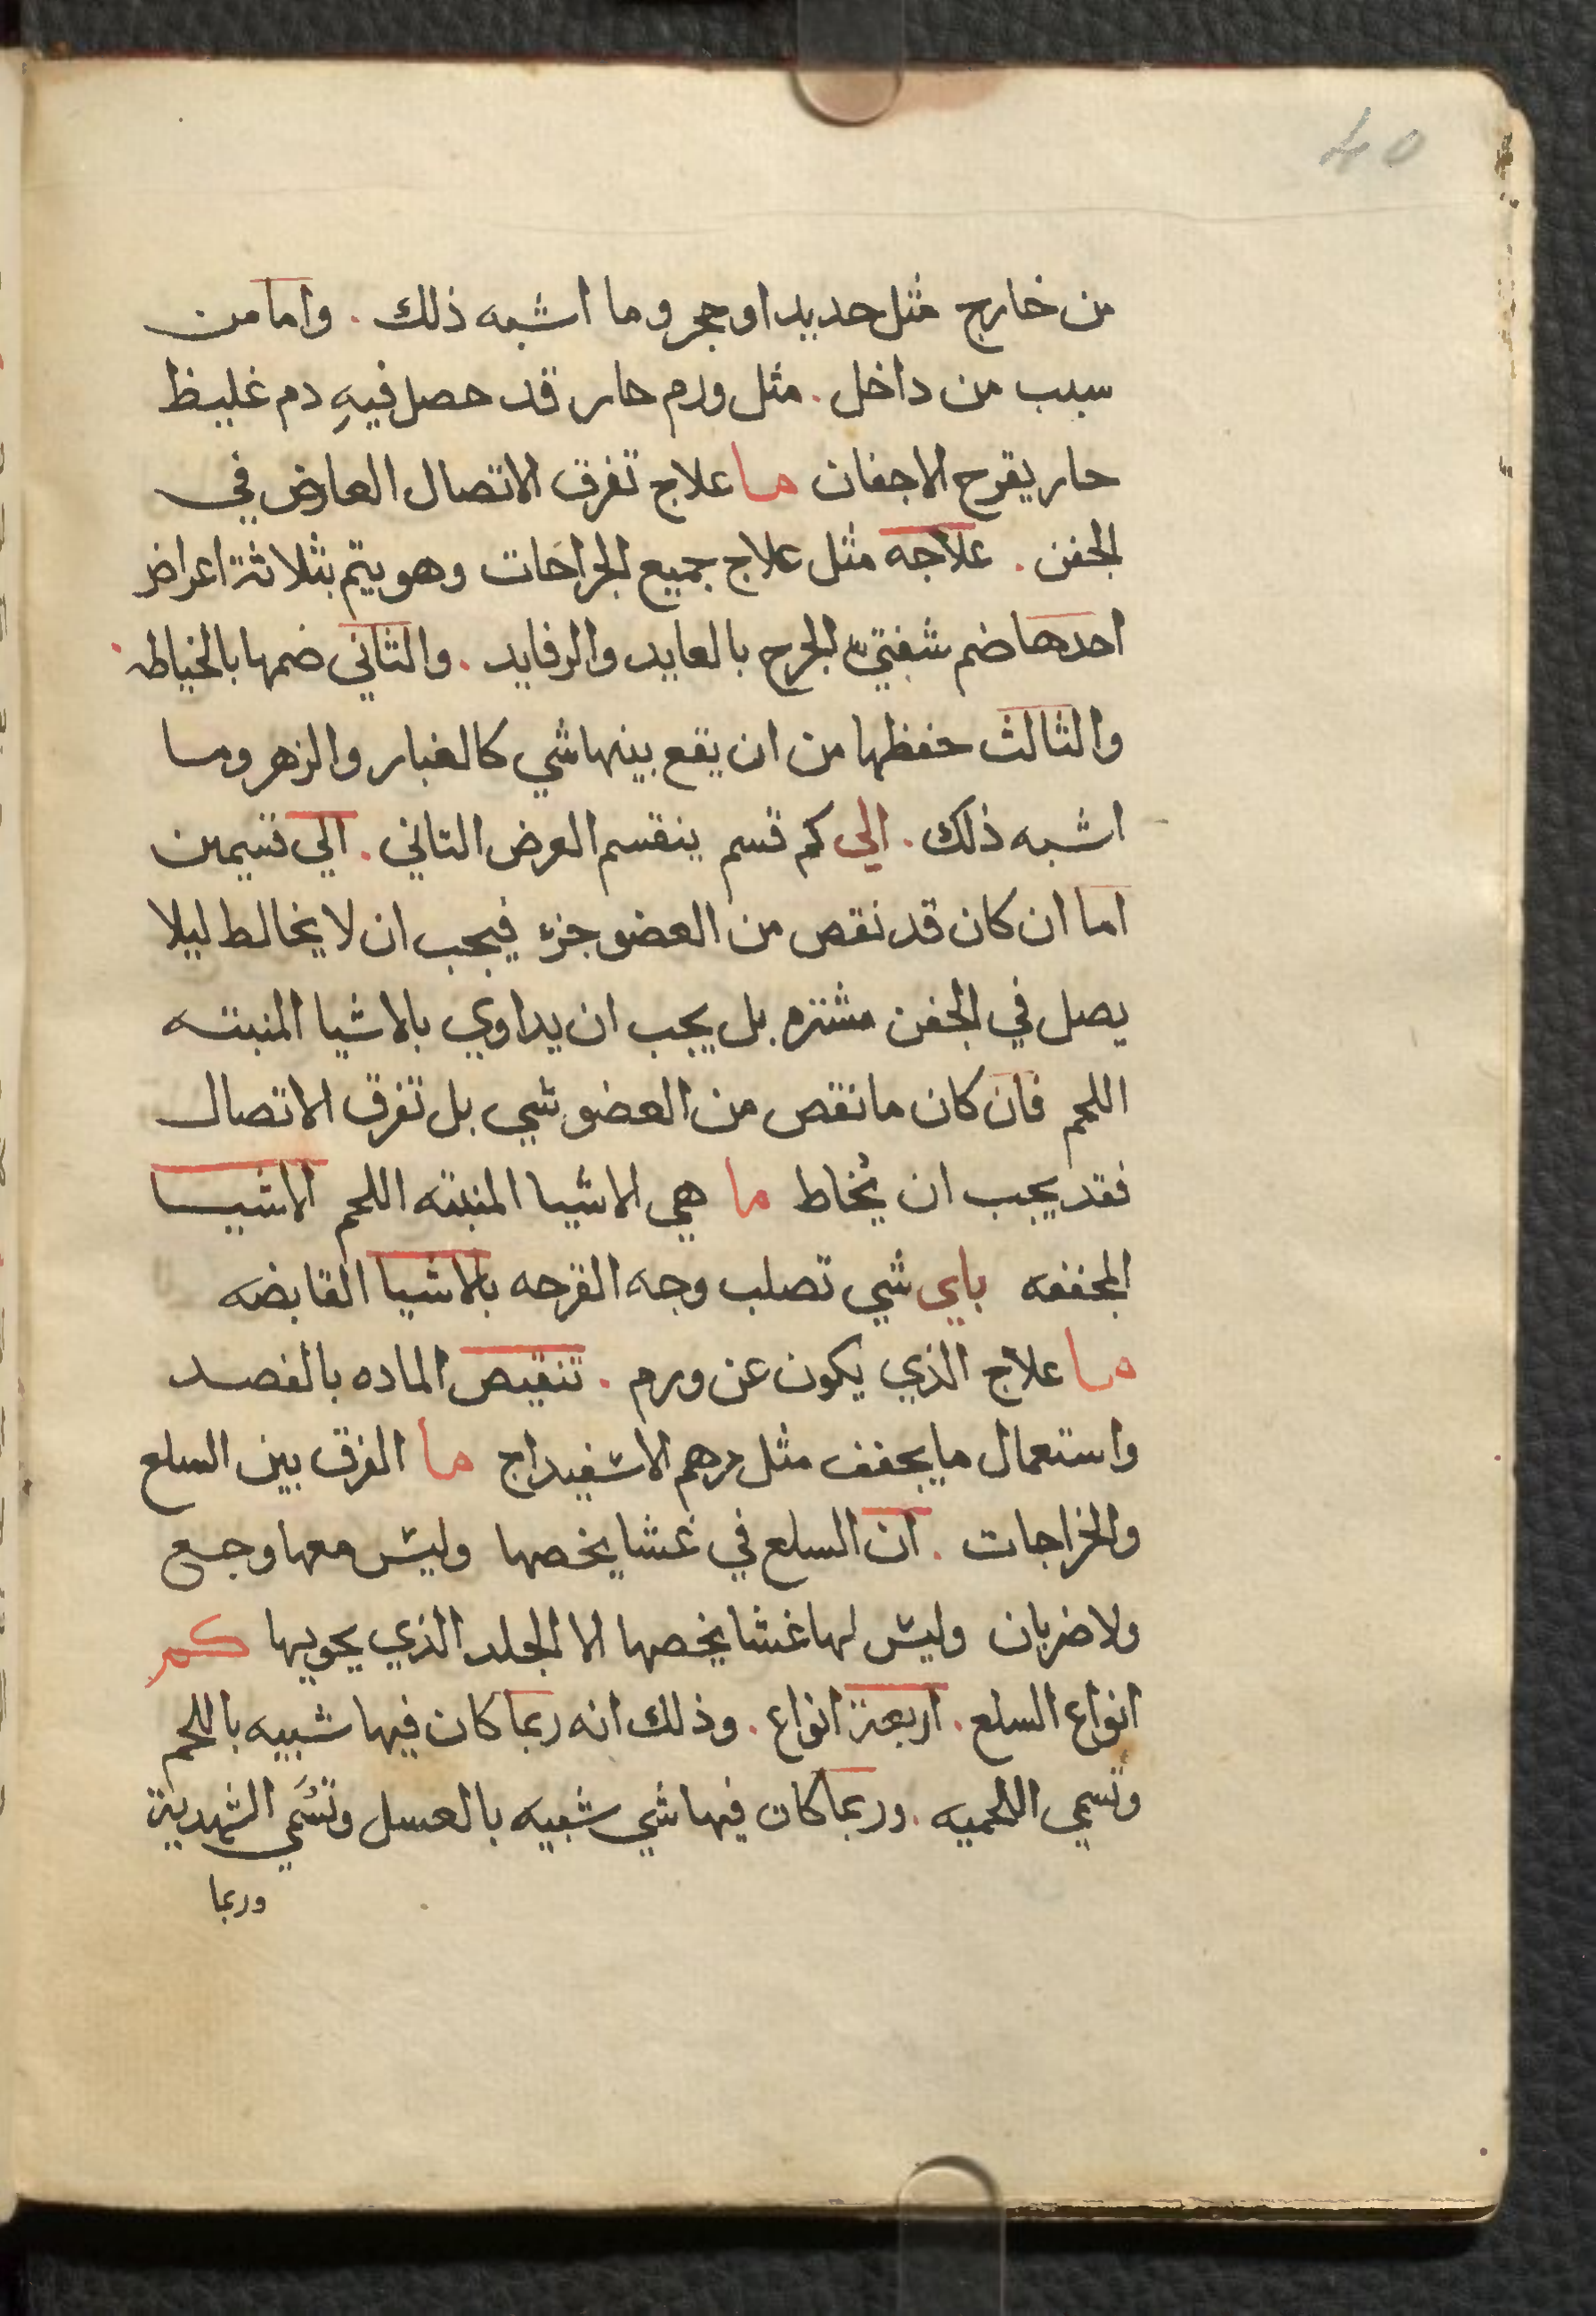 40
من خارج مثل حديد او حجر وما اشبه ذلك . واما من
سبب من داخل . مثل ورم حار قد حصل فيهِ دم غليظ
حار يقرح الاجفان ما علاج تفرق الاتصال العارض في
الجفن . علاجه مثل علاج جميع الجراحَات وهو يتم بثلاثة اعراض
احدها ضم شفتي الجرح بالعايد والرفايد . والثاني ضمها بالخياطه .
والثالث حفظها من ان يقع بينها شي كالغبار والزهر وما
اشبه ذلك . الي كم قسم ينقسم العرض التاني . الي قسمين
اما ان كان قد نقص من العضو جزء فيجب ان لا يخالط ليلا
يصل في الجفن مشترم بل يجب ان يداوي بالاشيا المنبته
اللحم فان كان ما نقص من العضو شي بل تفرق الاتصال
فقد يجب ان يُخاط ما هي الاشيا المنبته اللحم الاشيا
المجففه باي شي تصلب وجه القرحه بالاشيا القابضه
ما علاج الذي يكون عن ورم . تنقيص الماده بالفصد
واستعمال ما يجفف مثل مرهم الاسفيداج ما الفرق بين السلع
والخراجات . ان السلع في غشا يخصها وليس معها وجع
ولا ضربان وليس لها غشا يخصها الا الجلد الذي يحويها كم
انواع السلع . اربعة انواع . وذلك انه ربما كان فيها شبيه باللحم
وتسمي اللحميه . وربما كان فيها شي شبيه بالعسل وتسَمي الشهدية
وربما